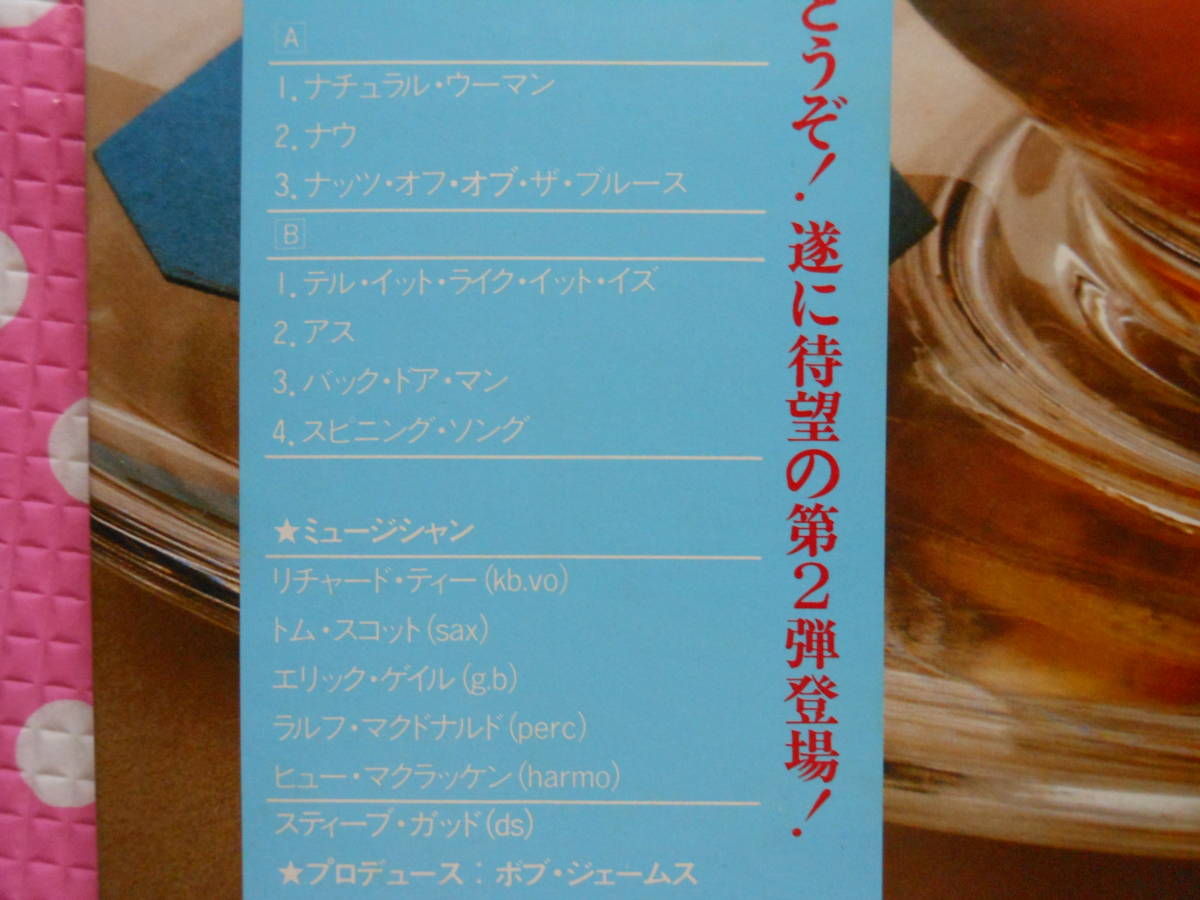 A
1. ナチュラル・ウーマン
2. ナウ
3. ナッツ・オフ・オブ・ザ・ブルース
B
1. テル・イット・ライク・イット・イズ
2. アス
3. バック・ドア・マン
4. スピニング・ソング
★ミュージシャン
リチャード・ティー(kb.vo)
トム・スコット(sax)
エリック・ゲイル(g.b)
ラルフ・マクドナルド(perc)
ヒュー・マクラッケン(harmo)
スティーブ・ガッド(ds)
★プロデュース：ボブ・ジェームス
どうぞ！遂に待望の第2弾登場！